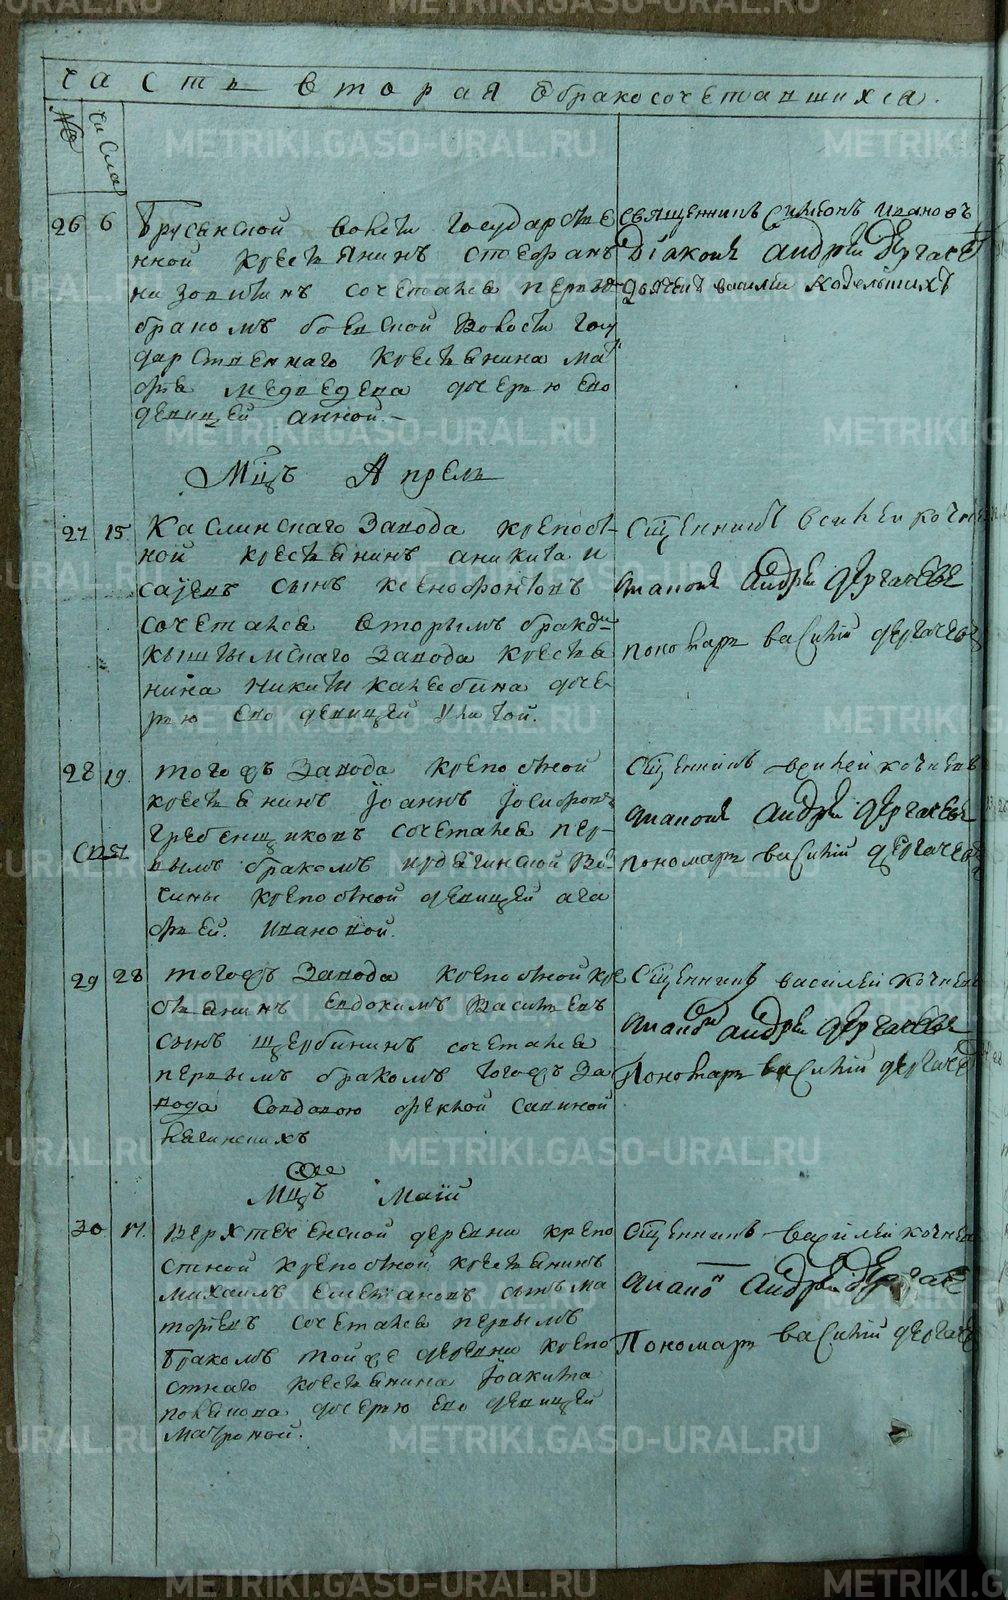 часть вторая о бракосочетавшихся.
№
числа
26 6 Брусенской волости государстве
нной крестьянинъ стефанъ
низовитинъ сочетался первы
бракомъ боевской волости госу
дарственнаго крестьянина ма
фея медведева дочерью ево
девицей анной.
священникъ симеонъ ивановъ
Дiаконъ андрей Дергачев
дьячекъ василий Кодельшихъ
Мцъ Апрель
27 15 Каслинскаго завода крепост
ной крестьянинъ аникита и
саиевъ сынъ ксенофонтовъ
сочетался вторымъ бракомъ
кыштымскаго завода крестья
нина никиты калябина доче
рью ево девицей улитой.
Сщенникъ василей кочне
диаконъ андрей дергачевъ
пономарь василий дергачевъ
28 19. тогожъ завода крепостной
крестьянинъ Iоаннъ Iосифовъ
гребенщиковъ сочетался пер
вымъ бракомъ
сины крепостной девицей ага
фьей. ивановой.
Сщенникъ василей кочневъ
диаконъ андрей дергачевъ
пономарь василий дергачевъ
29 28 тогожъ завода крепостной кре
стьянинъ евдокимъ васильевъ
сынъ щербининъ сочетался
первымъ бракомъ тогожъ за
вода вдовою феклой савиной
Сщенникъ василей кочнев
диаконъ андрей дергачевъ
Пономарь василий дергачев
Мцъ Маий
30 17. верхтеченской деревни крепо
стной крепостной крестьянинъ
михаилъ емельяновъ сынъ ма
тофеевъ сочетался первымъ
бракомъ тойже деревни крепо
стнаго крестьянина Iоакима
дочерью ево девицей
матроной.
Сщенникъ василей кочнев
диаконъ андрей дергачев
Пономарь василий дергачев
METRIKI.GASO-URAL.RU